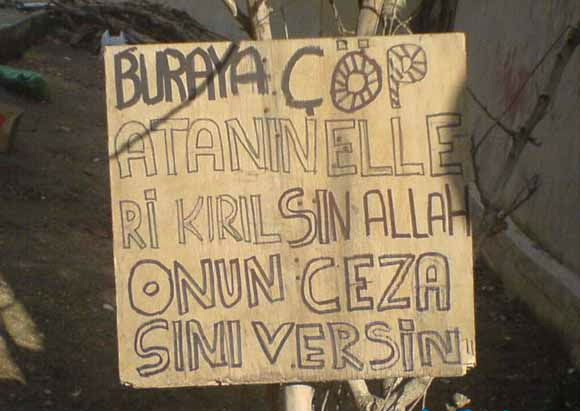 BURAYA ÇÖP
ATANINELLE
Rİ KIRILSIN ALLAH
ONUN CEZA
SINI VERSİN